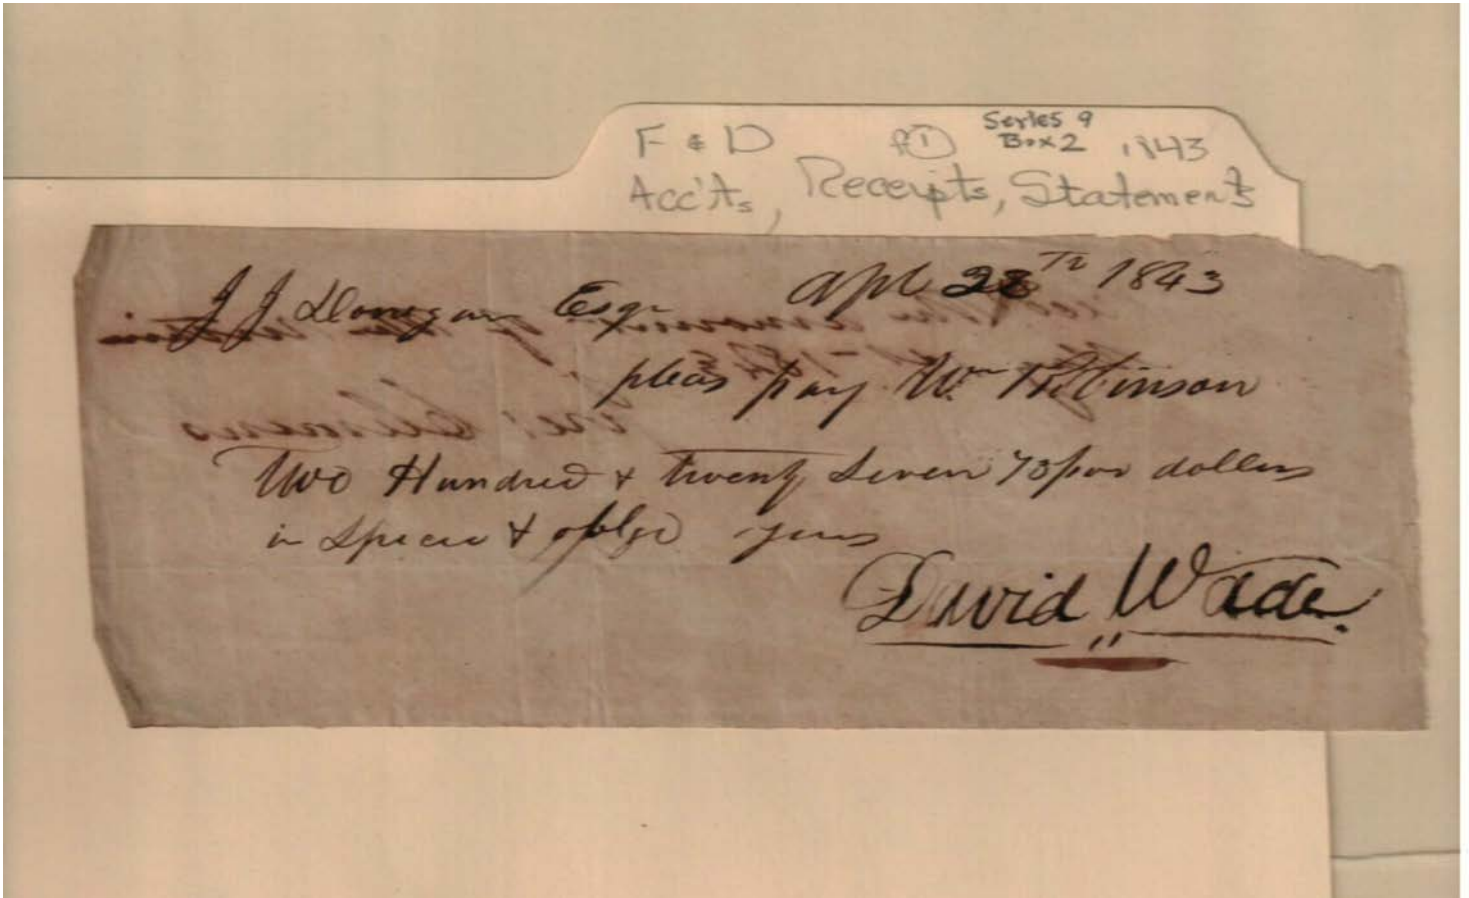 F & D f(1) Series 9 Box 2 1843
Acc'ts, Receipts, Statements
J J Donegan Esqr Apl 28th 1843
pleas pay Wm
Two Hundred & twenty Seven dollars
in Specie & oblge yours
David Wade.